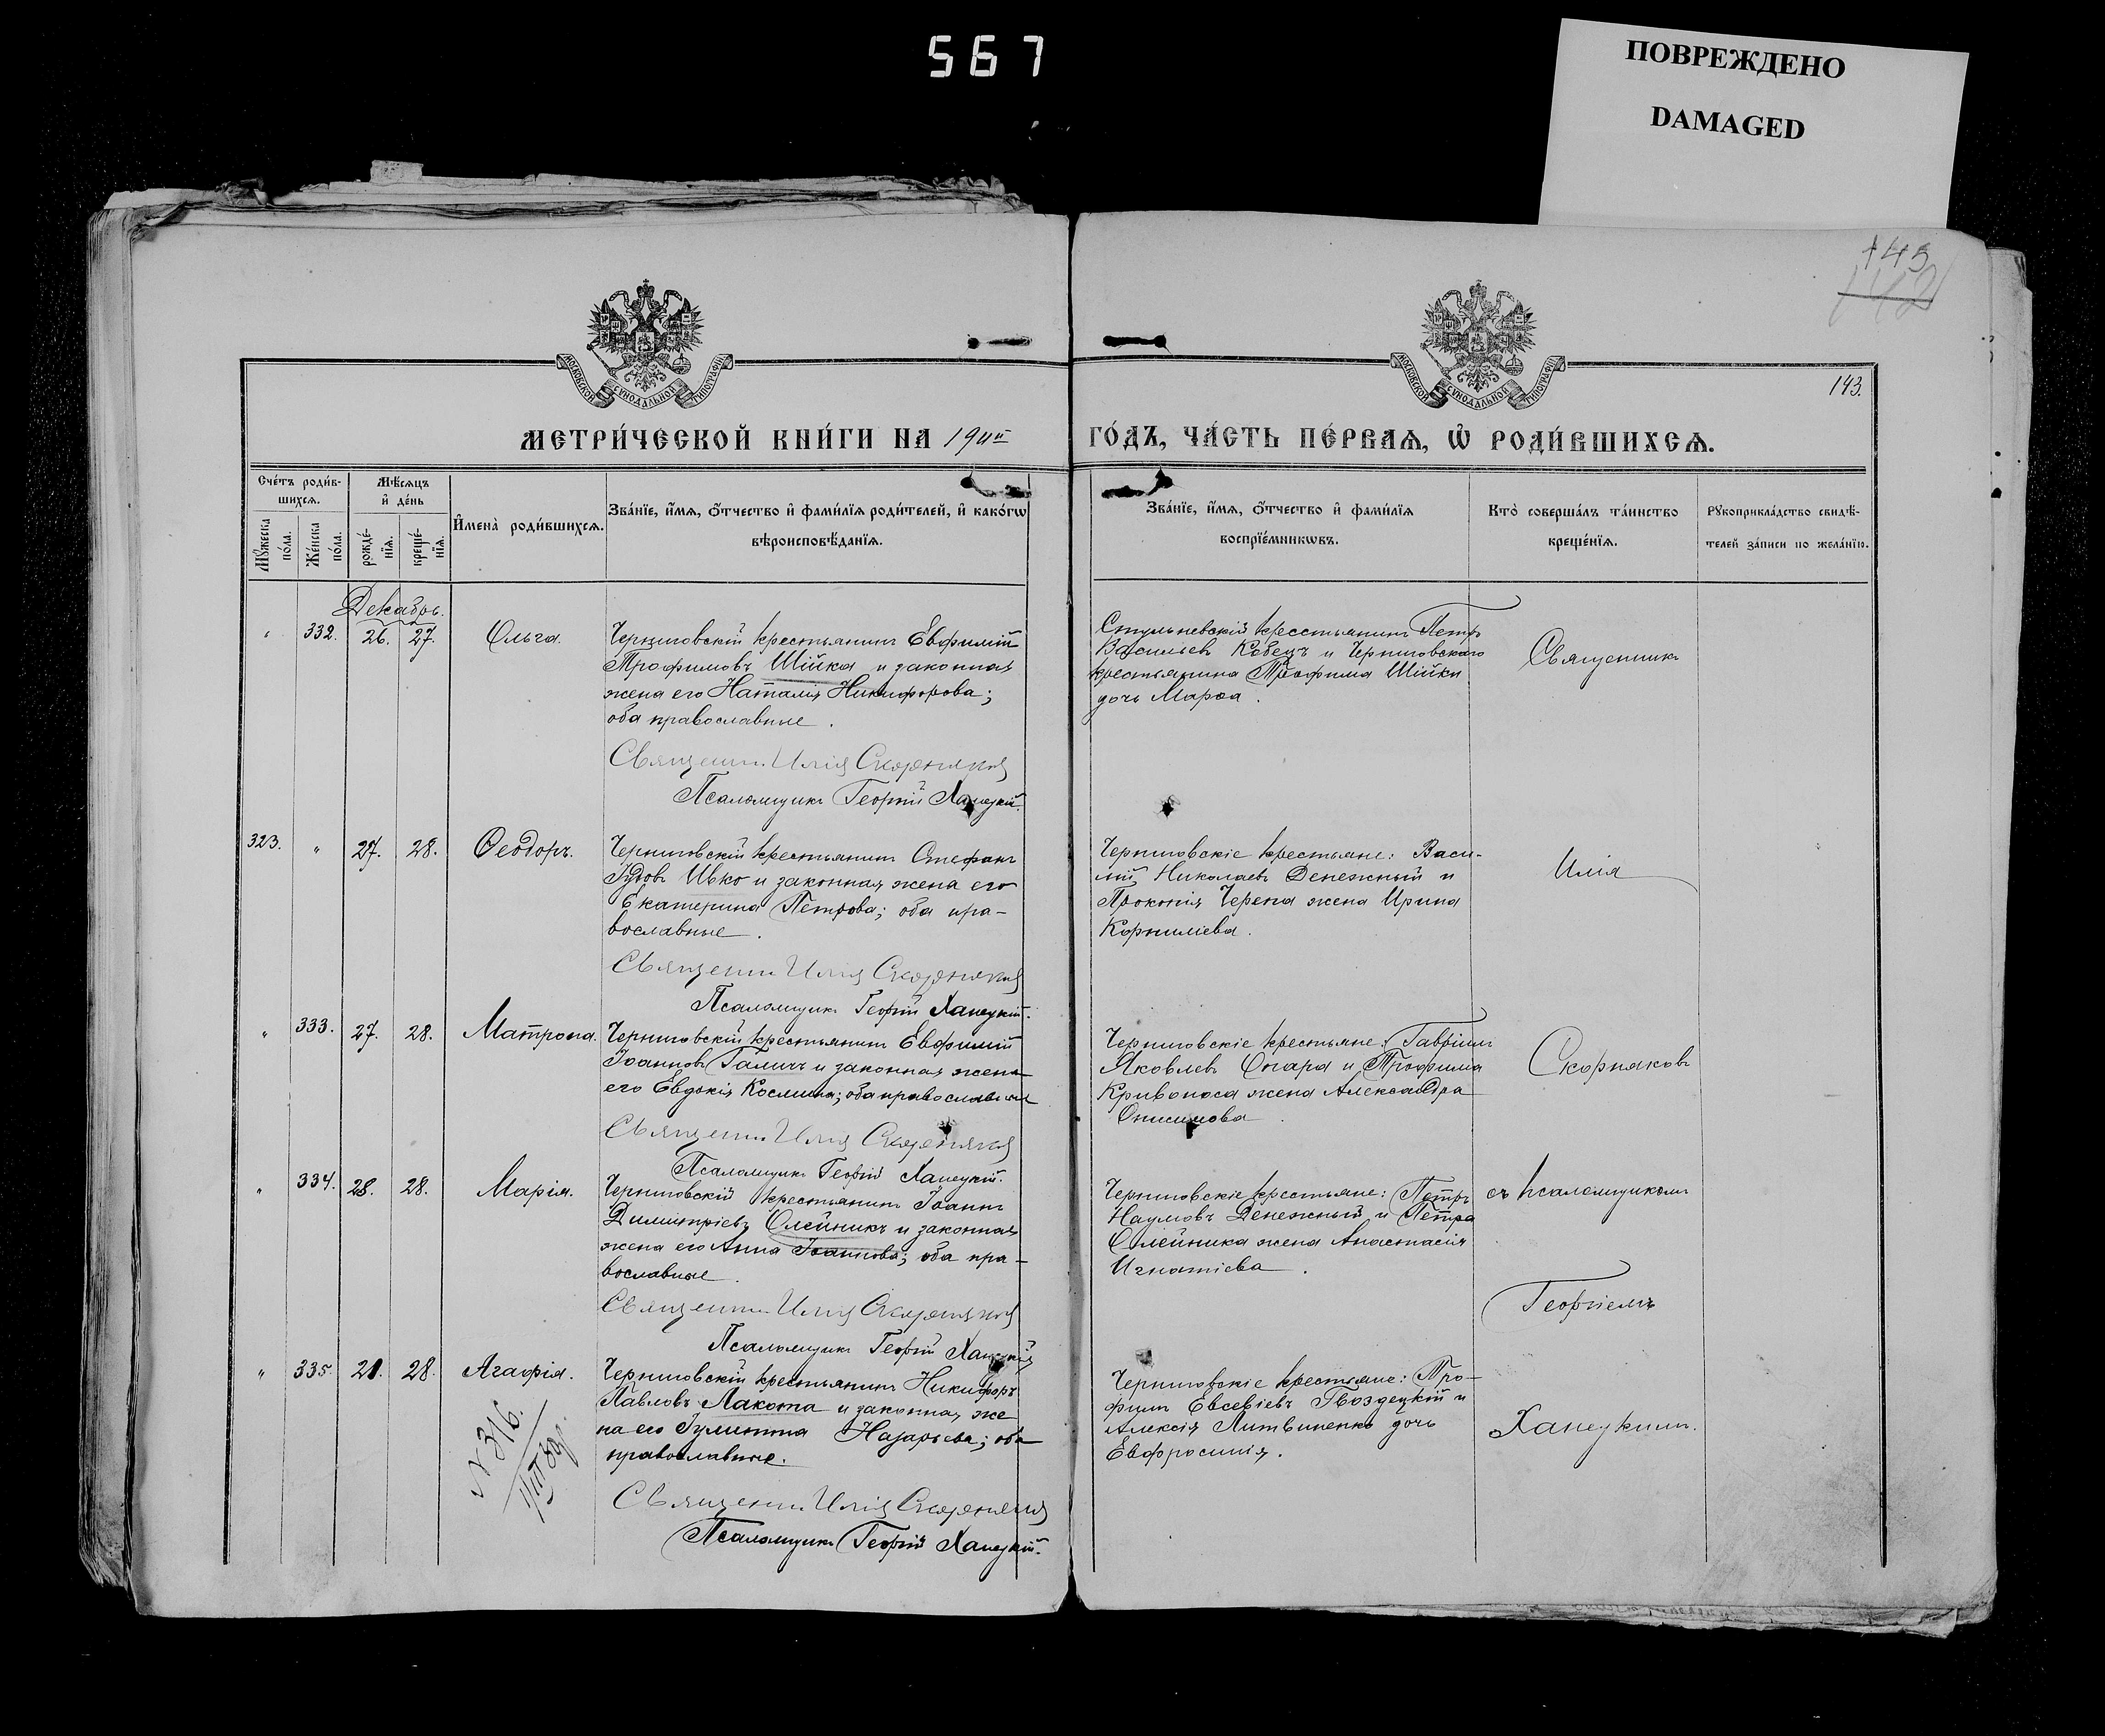 567
ПОВРЕЖДЕНО
DAMAGED
143
142
143.
МОСКОВСКОЙ СѴНОДАЛЬНОЙ ТИПОГРАФІИ
МОСКОВСКОЙ СѴНОДАЛЬНОЙ ТИПОГРАФІИ
МЕТРИ́ЧЕСКОЙ КНИ́ГИ НА 1911й
ГО́ДЪ, ЧА́СТЬ ПЕ́РВАѦ, Ѡ҆ РОДИ́ВШИХСѦ.
Сче́тъ роди́в-
шихсѧ.
Мꙋ́жеска по́ла.
Же́нска по́ла.
Мѣ́сѧцъ
и҆ де́нь
рожде́-
нїѧ.
креще́-
нїѧ.
И҆мена̀ роди́вшихсѧ.
Зва́нїе, и҆́мѧ, ѻ҆́тчество и҆ фами́лїѧ роди́телей, и҆ како́гѡ
вѣроисповѣ́данїѧ.
Зва́нїе, и҆́мѧ, ѻ҆́тчество и҆ фами́лїѧ
воспрїе́мникѡвъ.
Кто̀ соверша́лъ та́инство
креще́нїѧ.
Рꙋкоприкла́дство свидѣ́-
телей за́писи по жела́нїю.
Декабрь.
" 332. 26. 27. Ольга.
Черниговскій крестьянинъ Евфимій
Трофимовъ Шійка и законная
жена его Наталія Никифорова;
оба православные.
Священн. Илія Скорняковъ
Псаломщикъ Георгій Ханецкій.
Стульневскій крестьянинъ Петръ
Васильевъ Кобецъ и Черниговскаго
крестьянина Трофима Шійки
дочь Марѳа.
Священникъ
323. " 27. 28. Ѳеодоръ.
Черниговскій крестьянинъ Стефанъ
Іудовъ Ивко и законная жена его
Екатерина Петрова; оба пра-
вославные.
Священн. Илія Скорняковъ
Псаломщикъ Георгій Ханецкій.
Черниговскіе крестьяне: Васи-
лій Николаевъ Денежный и
Прокопія Черепа жена Ирина
Корниліева.
Илія
" 333. 27. 28. Матрона.
Черниговскій крестьянинъ Евфимій
Іоанновъ Галичъ и законная жена
его Евдокія Космина; оба православные
Священн. Илія Скорняковъ
Псаломщикъ Георгій Ханецкій.
Черниговскіе крестьяне: Гавріилъ
Яковлевъ Опара и Трофима
Кривоноса жена Александра
Онисимова.
Скорняковъ
" 334. 28. 28. Марія.
Черниговскій крестьянинъ Іоаннъ
Димитріевъ Олейникъ и законная
жена его Анна Іоаннова; оба пра-
вославные.
Священн. Илія Скорняковъ
Псаломщикъ Георгій Ханецкій
Черниговскіе крестьяне: Петръ
Наумовъ Денежный и Петра
Олейника жена Анастасія
Игнатіева.
съ псаломщикомъ
Георгіемъ
" 335. 21. 28. Агафія.
Черниговскій крестьянинъ Никифоръ
Павловъ Лакота и законная же
на его Іулитта Назарьева; оба
православные.
Священн. Илія Скорняковъ
Псаломщикъ Георгій Ханецкій.
Черниговскіе крестьяне: Тро-
фимъ Евсевіевъ Гвоздецкій и
Алексія Литвиненко дочь
Евфросинія.
Ханецкимъ.
N 316.